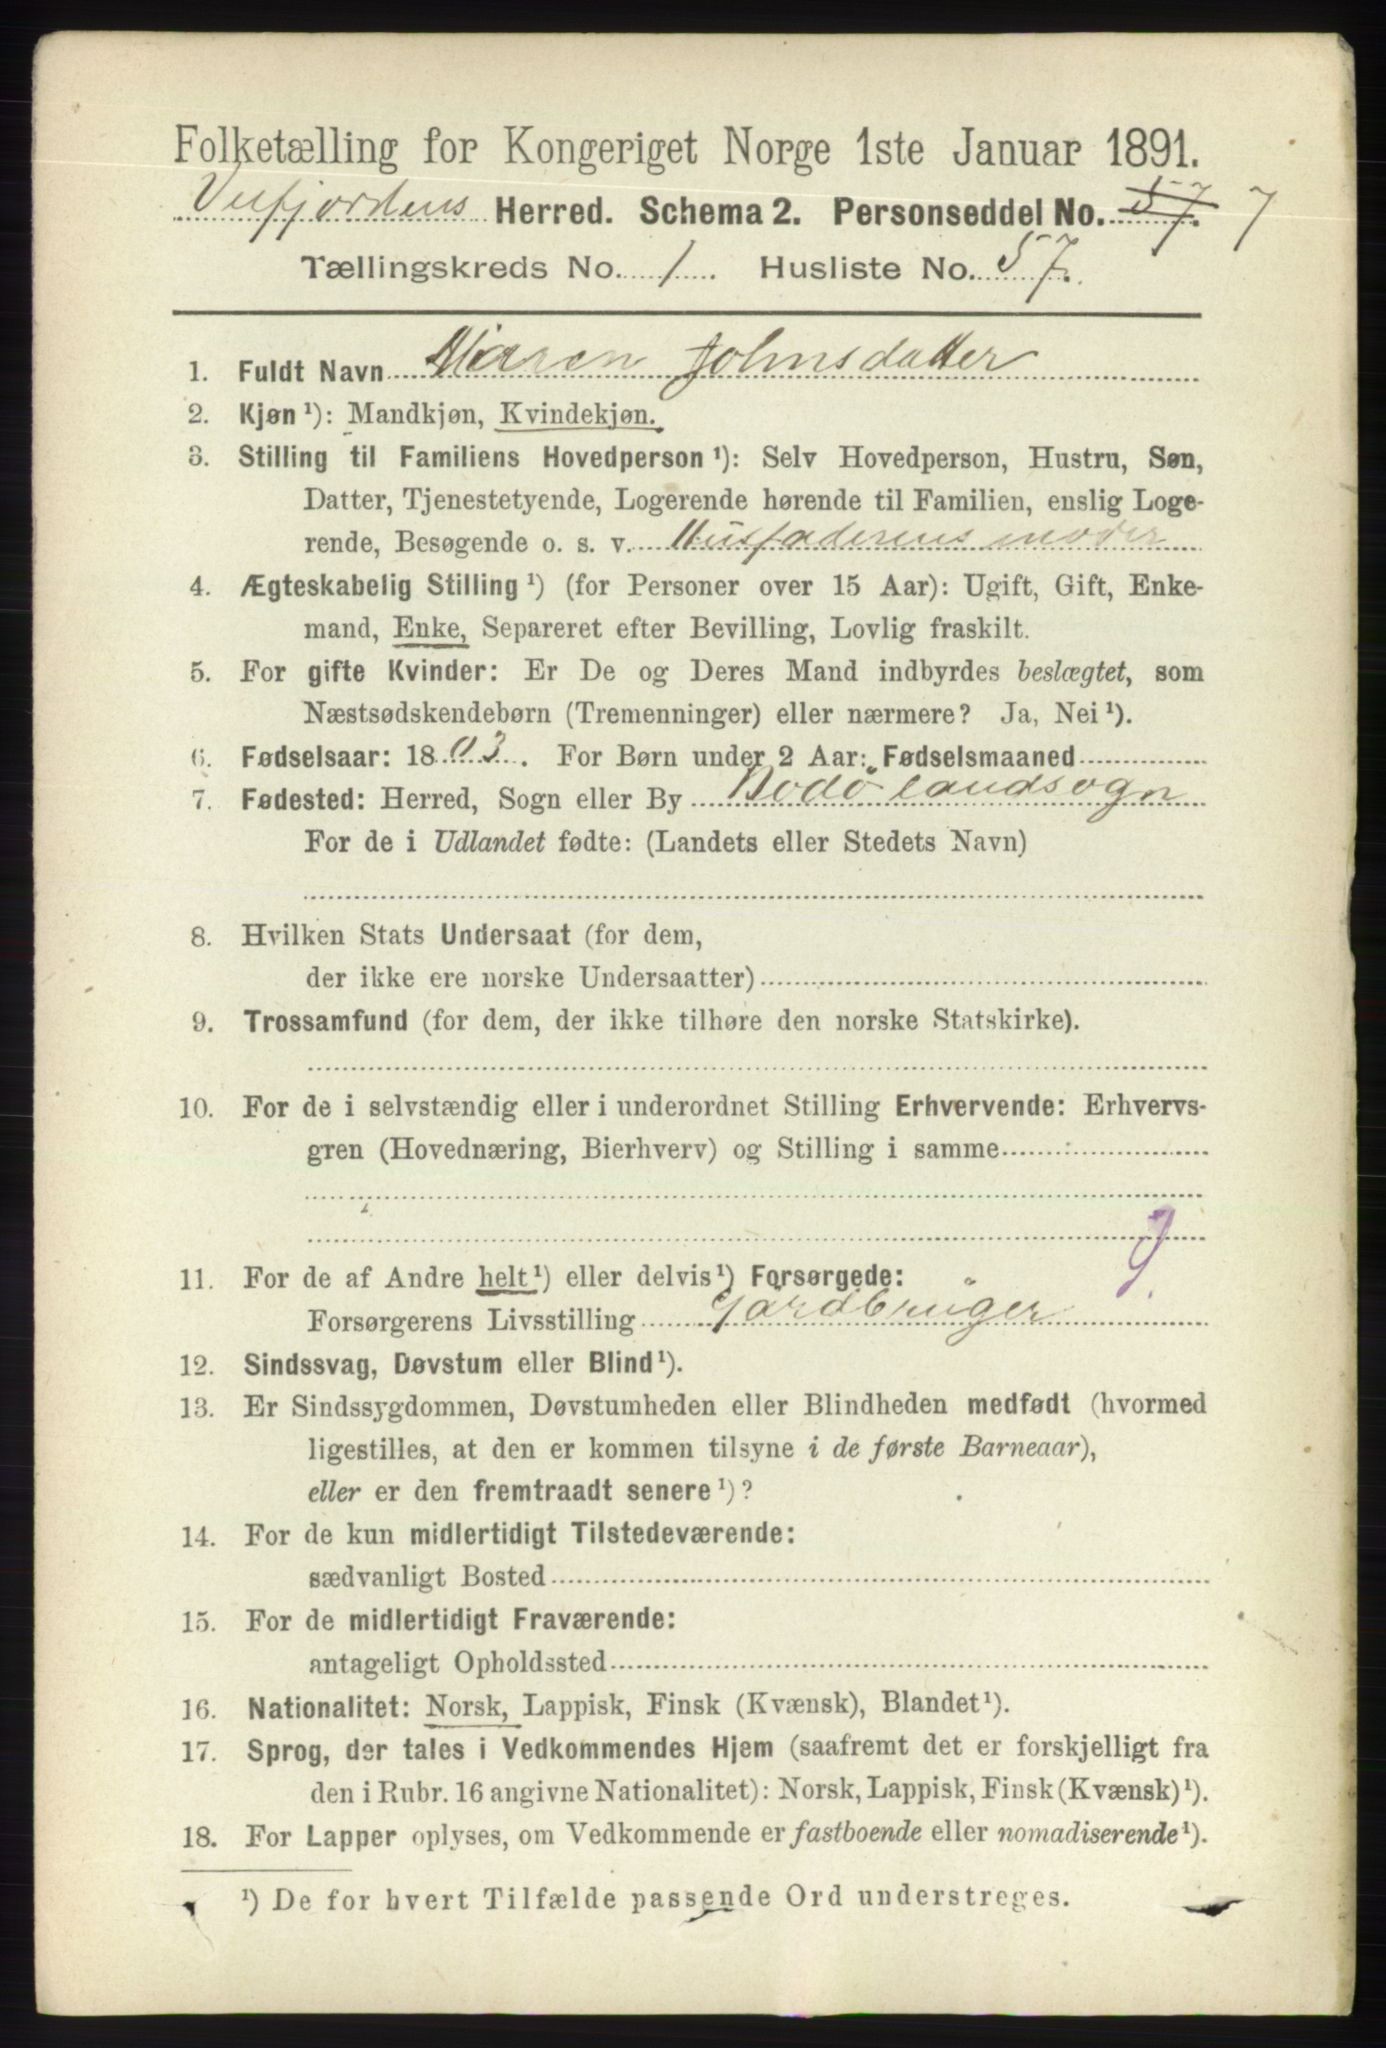 Folketælling for Kongeriget Norge 1ste Januar 1891.
Herred. Schema 2. Personseddel No. 57. 7
Tællingskreds No. 1. Husliste No. 57.
1. Fuldt Navn Maren Johnsdatter
2. Kjøn ¹): Mandkjøn, Kvindekjøn.
3. Stilling til Familiens Hovedperson ¹): Selv Hovedperson, Hustru, Søn,
Datter, Tjenestetyende, Logerende hørende til Familien, enslig Loge-
rende, Besøgende o. s. v. Husfaderens moder
4. Ægteskabelig Stilling ¹) (for Personer over 15 Aar): Ugift, Gift, Enke-
mand, Enke, Separeret efter Bevilling, Lovlig fraskilt.
5. For gifte Kvinder: Er De og Deres Mand indbyrdes beslægtet, som
Næstsødskendebørn (Tremenninger) eller nærmere? Ja, Nei ¹).
6. Fødselsaar: 1803. For Børn under 2 Aar: Fødselsmaaned
7. Fødested: Herred, Sogn eller By Bodö landsogn
For de i Udlandet fødte: (Landets eller Stedets Navn)
8. Hvilken Stats Undersaat (for dem,
der ikke ere norske Undersaatter)
9. Trossamfund (for dem, der ikke tilhøre den norske Statskirke).
10. For de i selvstændig eller i underordnet Stilling Erhvervende: Erhvervs-
gren (Hovednæring, Bierhverv) og Stilling i samme
11. For de af Andre helt ¹) eller delvis ¹) Forsørgede:
Forsørgerens Livsstilling Gårdbruger
12. Sindssvag, Døvstum eller Blind ¹).
13. Er Sindssygdommen, Døvstumheden eller Blindheden medfødt (hvormed
ligestilles, at den er kommen tilsyne i de første Barneaar),
eller er den fremtraadt senere ¹)?
14. For de kun midlertidigt Tilstedeværende:
sædvanligt Bosted
15. For de midlertidigt Fraværende:
antageligt Opholdssted
16. Nationalitet: Norsk, Lappisk, Finsk (Kvænsk), Blandet ¹).
17. Sprog, der tales i Vedkommendes Hjem (saafremt det er forskjelligt fra
den i Rubr. 16 angivne Nationalitet): Norsk, Lappisk, Finsk (Kvænsk) ¹).
18. For Lapper oplyses, om Vedkommende er fastboende eller nomadiserende ¹).
¹) De for hvert Tilfælde passende Ord understreges.